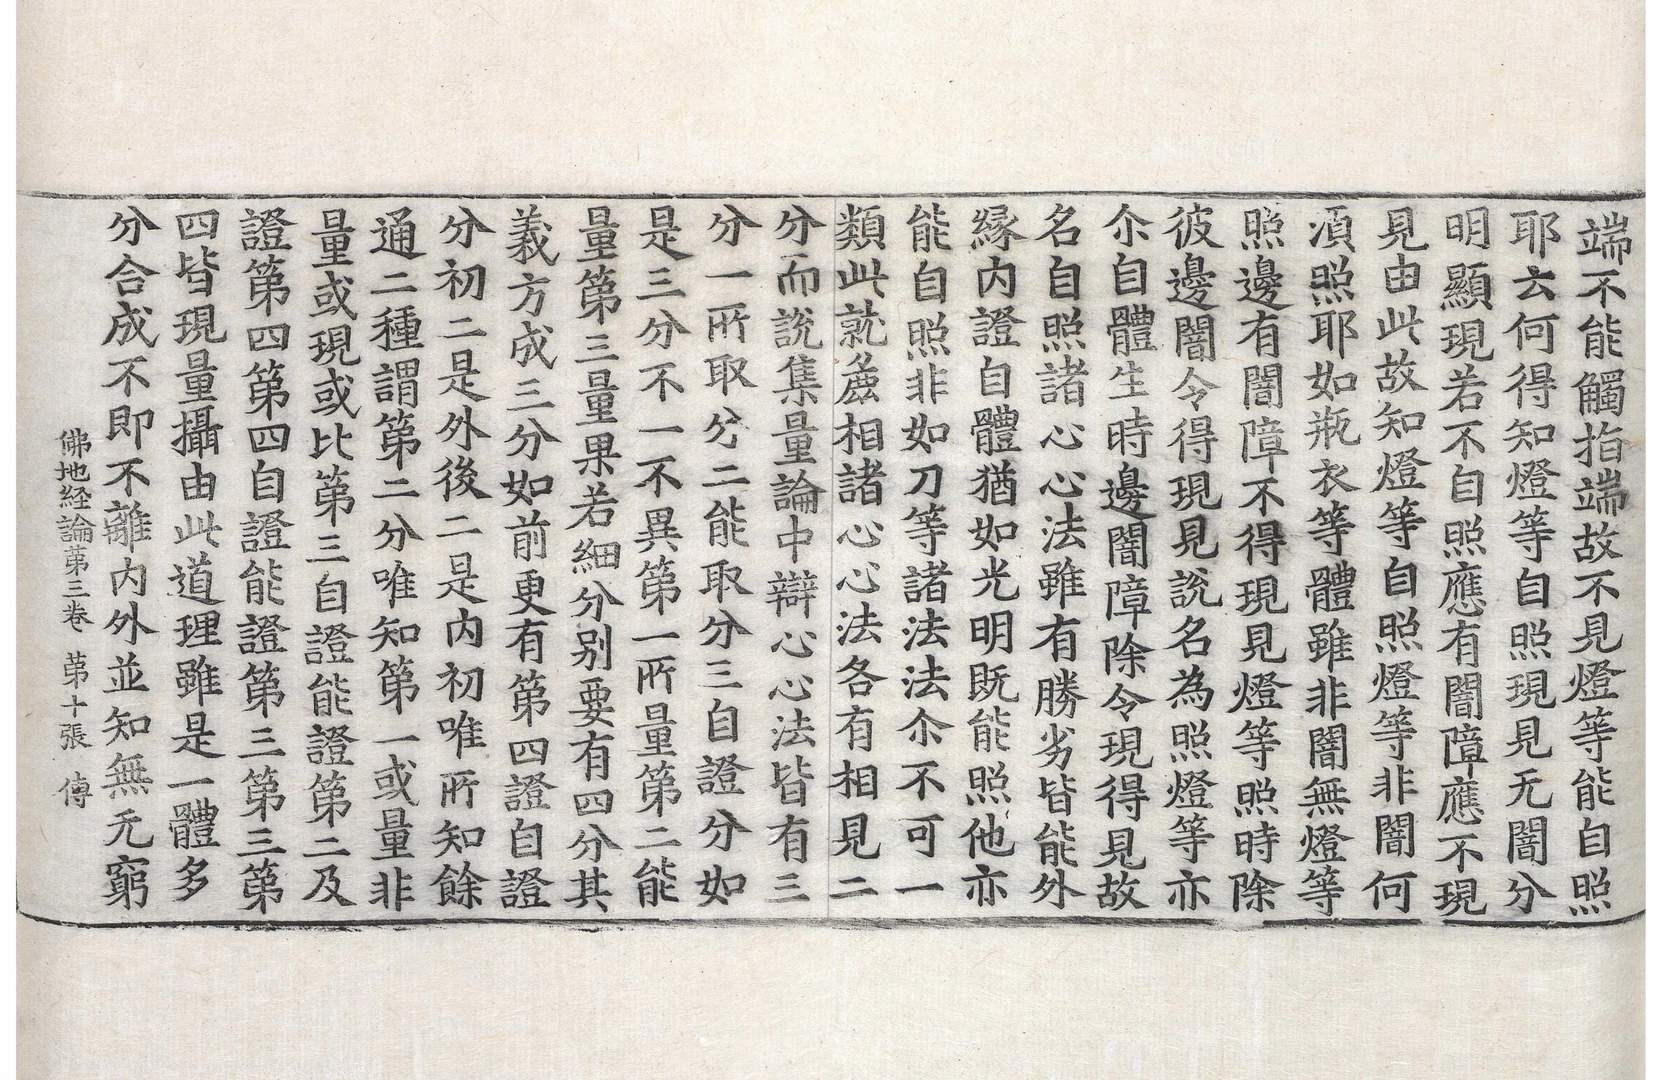 端不能觸指端故不見燈等能自照
耶云何得知燈等自照現見无闇分
明顯現若不自照應有闇障應不現
見由此故知燈等自照燈等非闇何
湏照耶如瓶衣等體雖非闇無燈等
照邊有闇障不得現見燈等照時除
彼邊闇令得現見說名為照燈等亦
尒自體生時邊闇障除令現得見故
名自照諸心心法雖有勝劣皆能外
縁內證自體猶如光明既能照他亦
能自照非如刀等諸法法尒不可一
類此就麁相諸心心法各有相見二
分而說集量論中辯心心法皆有三
分一所取分二能取分三自證分如
是三分不一不異第一所量第二能
量第三量果若細分别要有四分其
義方成三分如前更有第四證自證
分初二是外後二是内初唯所知餘
通二種謂第二分唯知第一或量非
量或現或比第三自證能證第二及
證第四第四自證能證第三第三第
四皆現量攝由此道理雖是一體多
分合成不即不離內外並知無无窮
佛地経論第三卷　第十張　傳